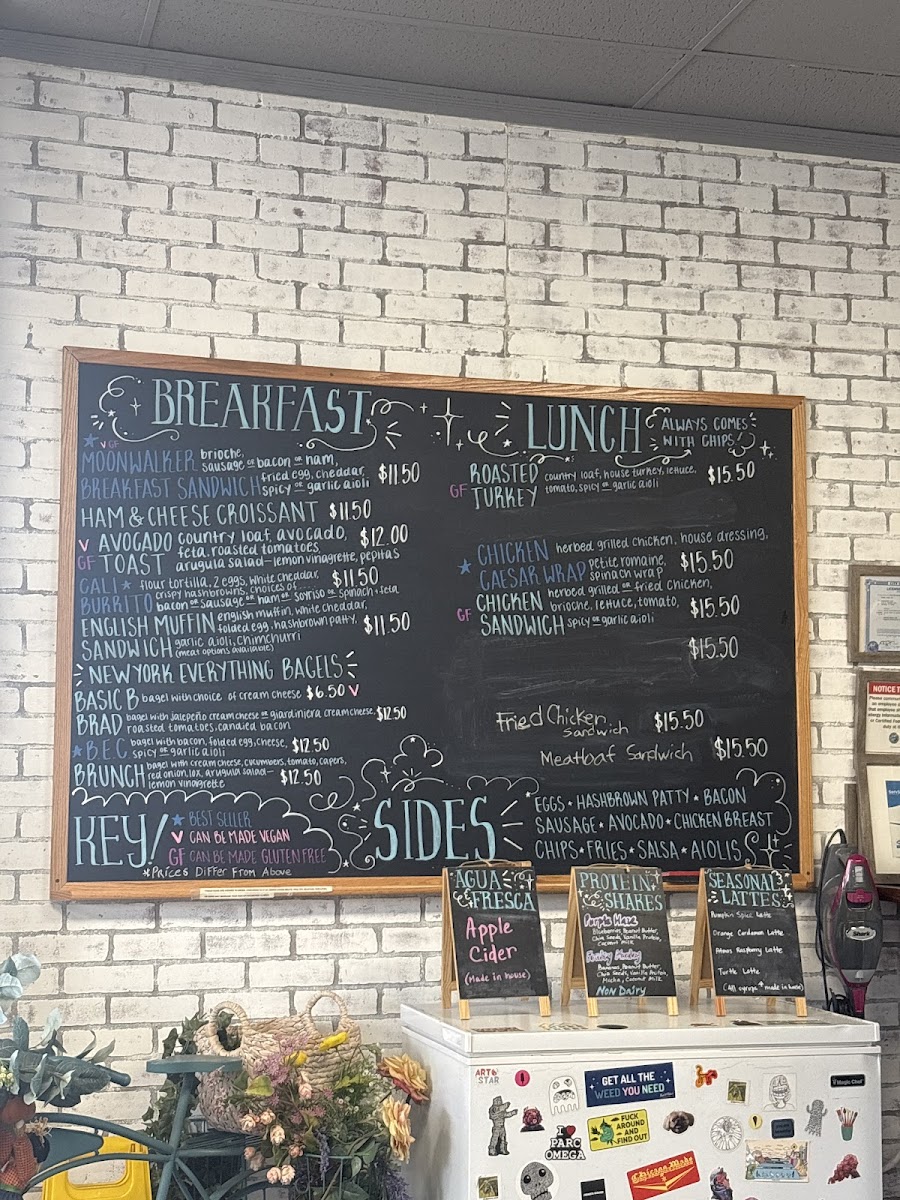 BREAKFAST
V GF
MOONWALKER brioche,
sausage or bacon or ham,
BREAKFAST SANDWICH fried egg, cheddar, $11.50
spicy or garlic aioli
HAM & CHEESE CROISSANT $11.50
V AVOCADO country loaf, avocado, $12.00
GF TOAST feta, roasted tomatoes,
arugula salad - lemon vinagrette, pepitas
CALI flour tortilla, 2 eggs, white cheddar, $11.50
BURRITO crispy hashbrowns, choices of
bacon or sausage or ham or soyriso or spinach + feta
ENGLISH MUFFIN english muffin, white cheddar,
folded egg, hashbrown patty, $11.50
SANDWICH garlic aioli, chimchurri
(meat options available)
NEW YORK EVERYTHING BAGELS
BASIC B bagel with choice of cream cheese $6.50 V
BRAD bagel with jalepeño cream cheese or giardiniera cream cheese, $12.50
roasted tomatoes, candied bacon
B.E.C. bagel with bacon, folded egg, cheese, $12.50
spicy or garlic aioli
BRUNCH bagel with cream cheese, cucumbers, tomato, capers,
red onion, lox, arugula salad - $12.50
lemon vinaigrette
KEY!
BEST SELLER
V CAN BE MADE VEGAN
GF CAN BE MADE GLUTEN FREE
*Prices Differ From Above
LUNCH ALWAYS COMES
WITH CHIPS!
ROASTED country loaf, house turkey, lettuce, $15.50
GF TURKEY tomato, spicy or garlic aioli
CHICKEN herbed grilled chicken, house dressing,
CAESAR WRAP petite romaine, $15.50
spinach wrap
CHICKEN herbed grilled or fried chicken,
GF brioche, lettuce, tomato, $15.50
SANDWICH spicy or garlic aioli
$15.50
Fried Chicken $15.50
Sandwich
Meatloaf Sandwich $15.50
SIDES
EGGS ★ HASHBROWN PATTY ★ BACON
SAUSAGE ★ AVOCADO ★ CHICKEN BREAST
CHIPS ★ FRIES ★ SALSA ★ AIOLIS
AGUA
FRESCA
Apple
Cider
(Made in house)
PROTEIN
SHAKES
Purple Haze
Blueberries, Peanut Butter,
Chia Seeds, Vanilla Protein,
Coconut Milk
Monkey
Bananas, Peanut Butter,
Chia Seeds, Vanilla Protein,
Mocha, Coconut Milk
Non Dairy
SEASONAL
LATTES
Pumpkin Spice Latte
Orange Cardamom Latte
Raspberry Latte
Turtle Latte
(All syrups made in house)
NOTICE T
Shark
ART
STAR
GET ALL THE
WEED YOU NEED
Magic Chef
FUCK
AROUND
AND
FIND OUT
I
PARC
OMEGA
Chicago Made